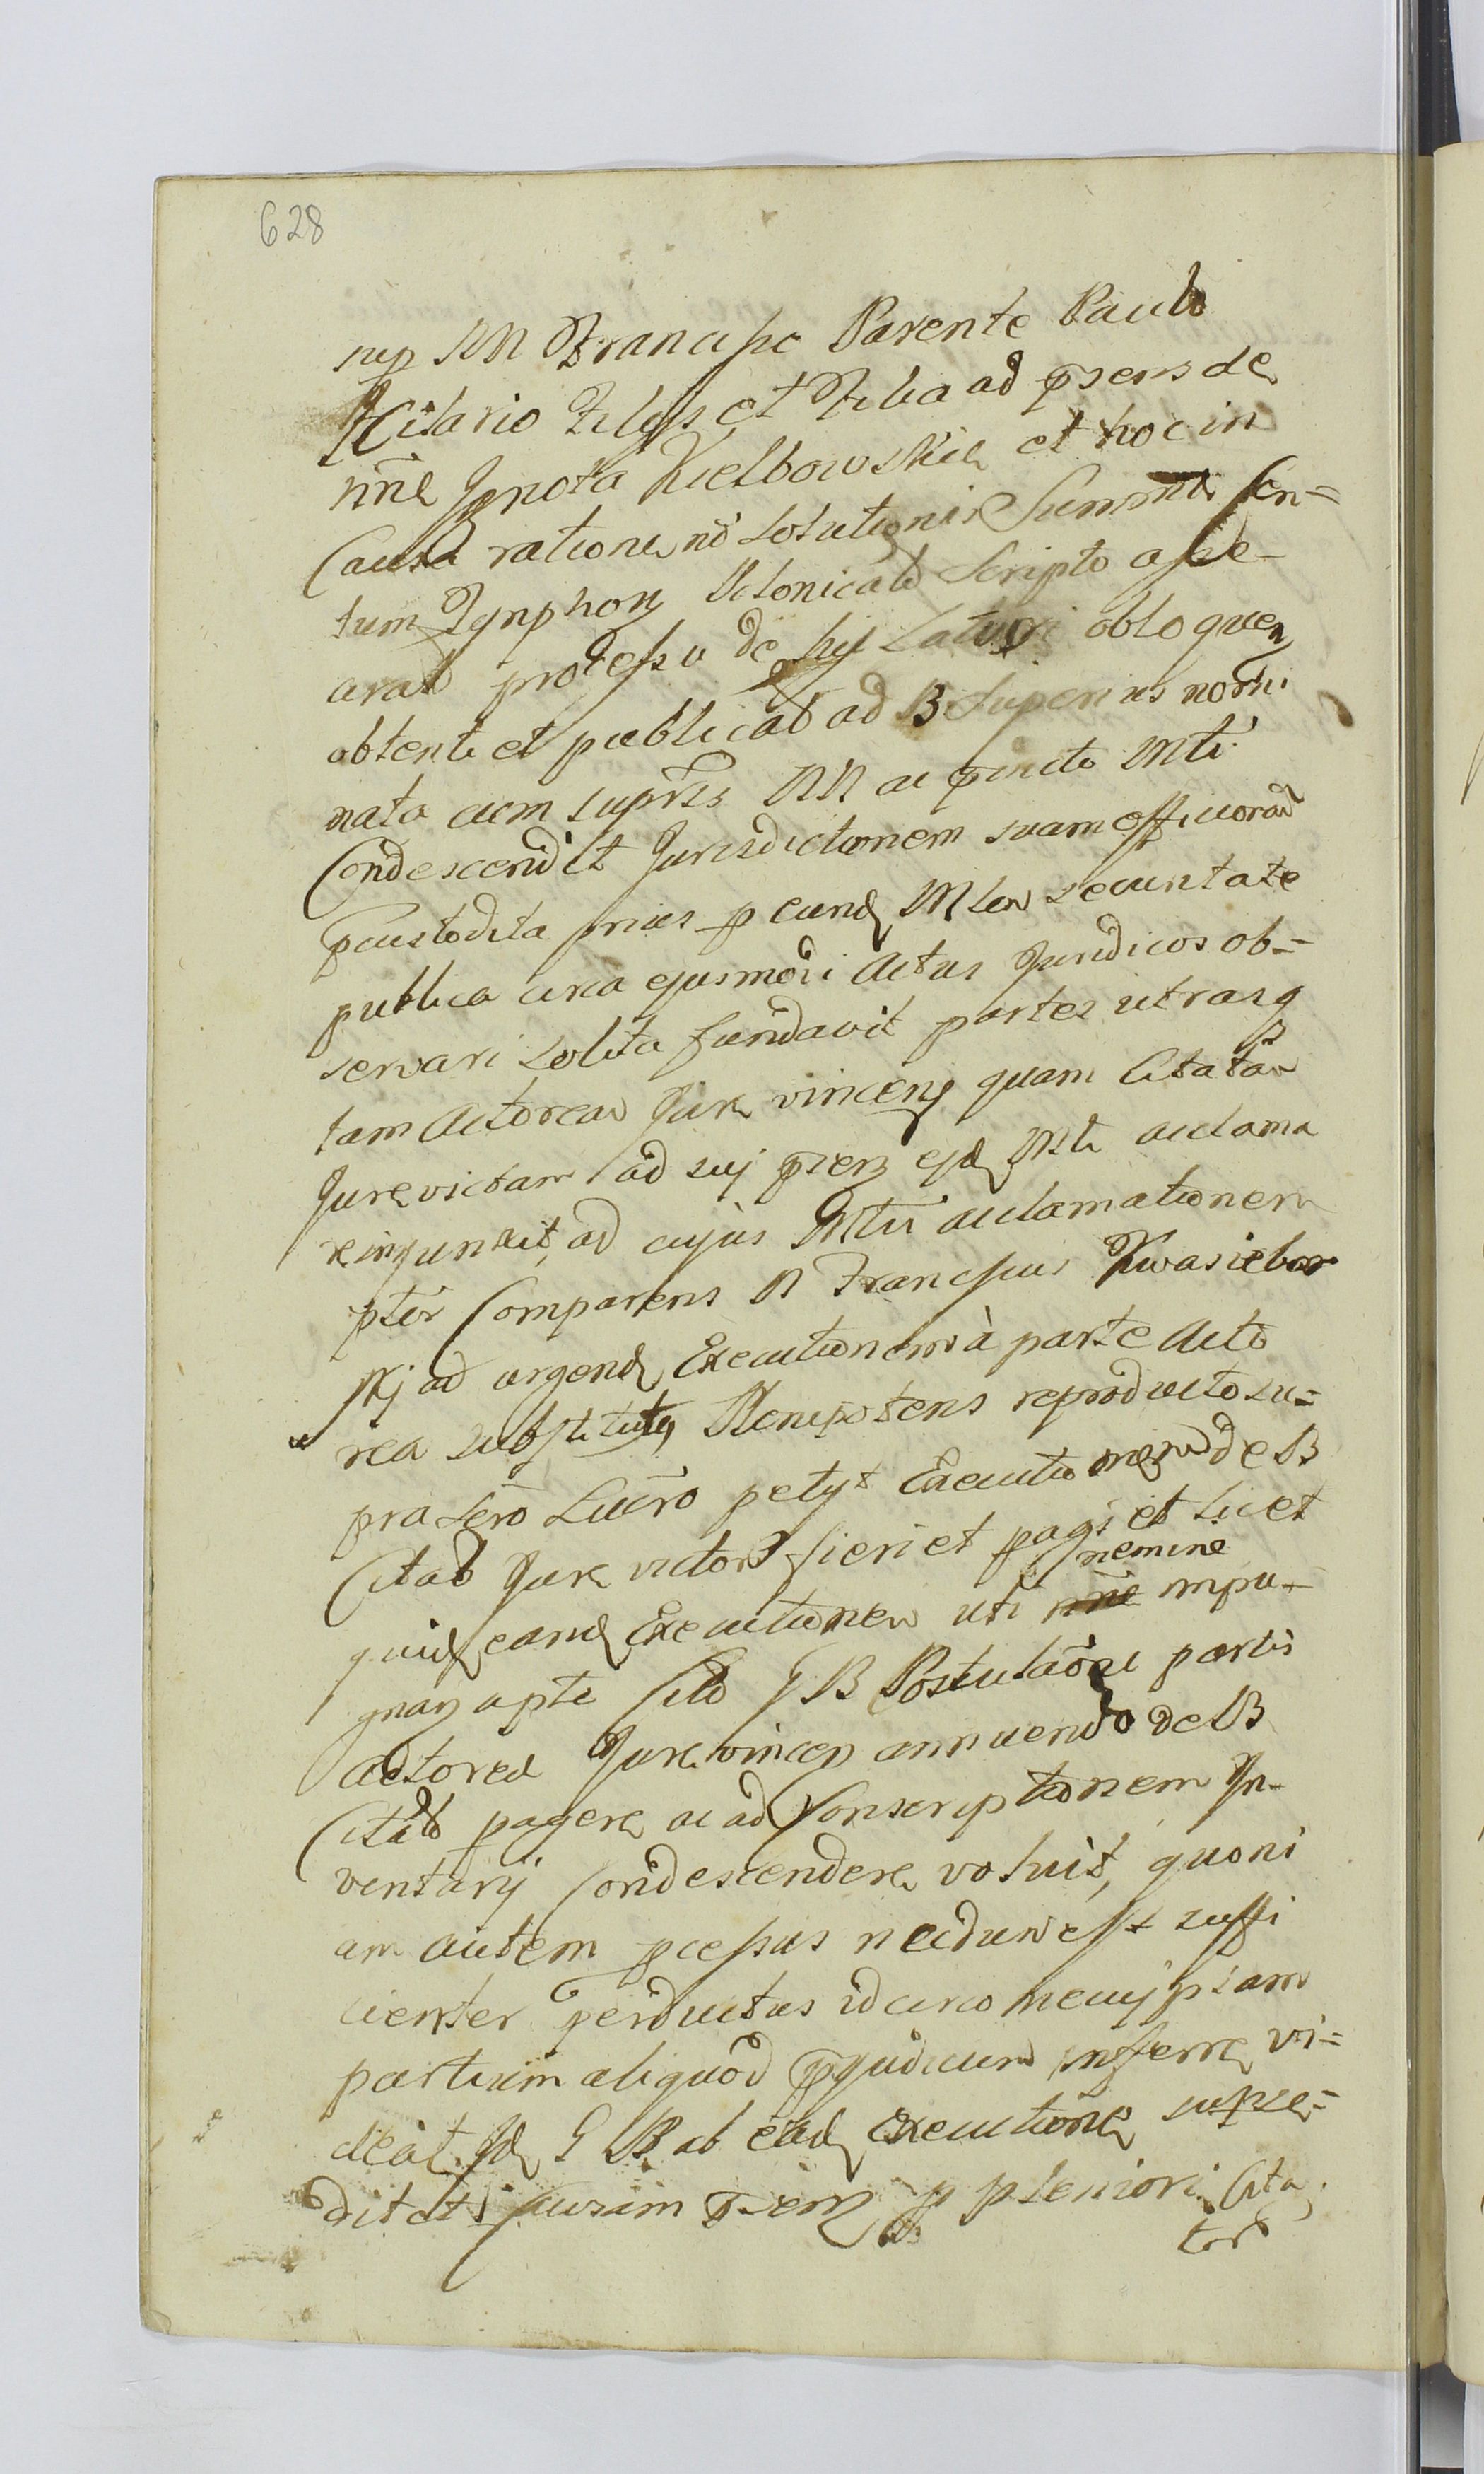 628
sup NN Francisco Parente Paulo
Hilario Filijs et Filia ad psens de
nne Ignota Kiełbowskie et hoc in
Causa ratione nõ solutionis Summæ Cen=
tum Tynphonũ Polonicalib Scripto asse-
cũrat processu de hij Latius obloquen
obtenti et publicat ad B Superius nomi
nata cum supris NN ac pincto Mli
Condescendit Jurisdictionem suam officiorad
pcustodita prius p eund Mlem securitate
publica circa ejusmodi Actus Juridicos ob=
servari solita fundavit partes utrasq
tam Actoream Jure vincen quam Citatam
Jurevictam ad suj psen ejd Mli acclama
re injunxit, ad cujus Mlis acclamationem
pter Comparens N Franciscus Kwasiebor
skj ad urgend Executionem à parte Acto
rea substitutus Plenipotens reproducto su=
pra sero Lucro petijt Executionem de B
Citat Jure victor fieri et pagi et licet
nemine
quid eand Executionem uti nñe impu-
gnan apte Cit G B Postulãoe partis
Actoreæ Jure vincen annuendo de B
Citat pagere ac ad Conscriptionem In-
ventarij Condescendere voluit, quoni
am autem pcessus necdum est suffi
cienter perductus idcirco ne cujpiam
partium aliquod pjudicium inferre vi=
deat Jd G B ab ead Executione superse=
dit et Causam psen p pleniori Cita,
tor